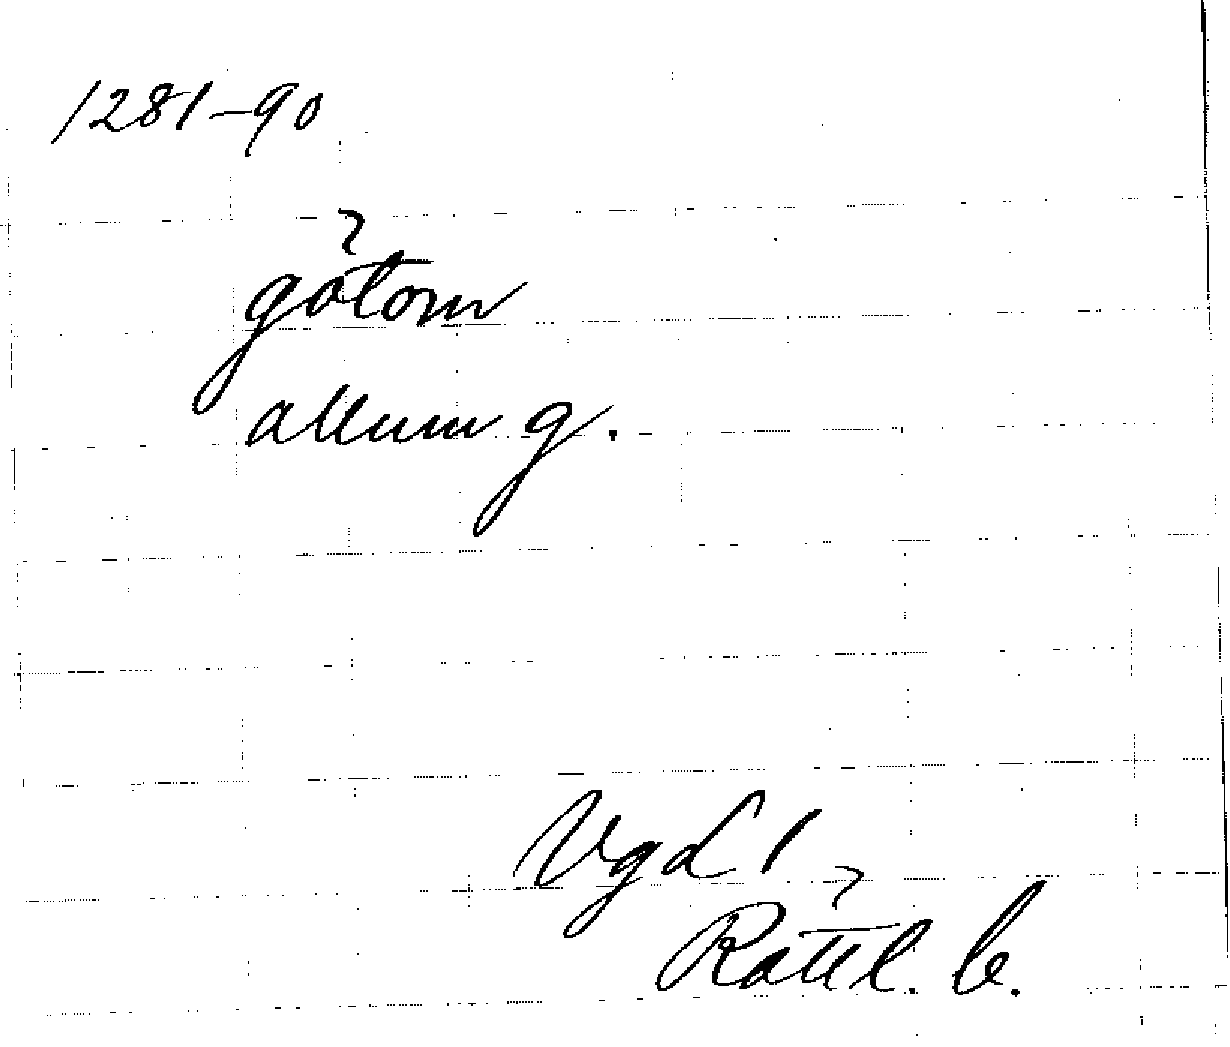 1281-90
götom
allum g.
VgL 1
Rättl. b.